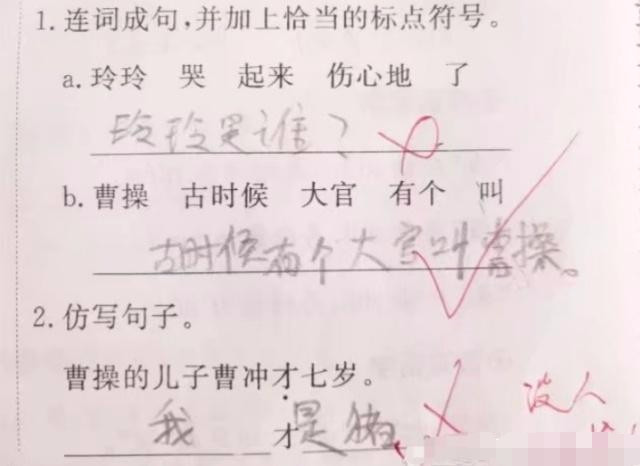 1.连词成句,并加上恰当的标点符号。
a.玲玲 哭 起来 伤心地 了
玲玲哭谁?
b.曹操 古时候 大官 有个 叫
古时候有个大官叫曹操。
2.仿写句子。
曹操的儿子曹冲才七岁。
我才是猪 没人